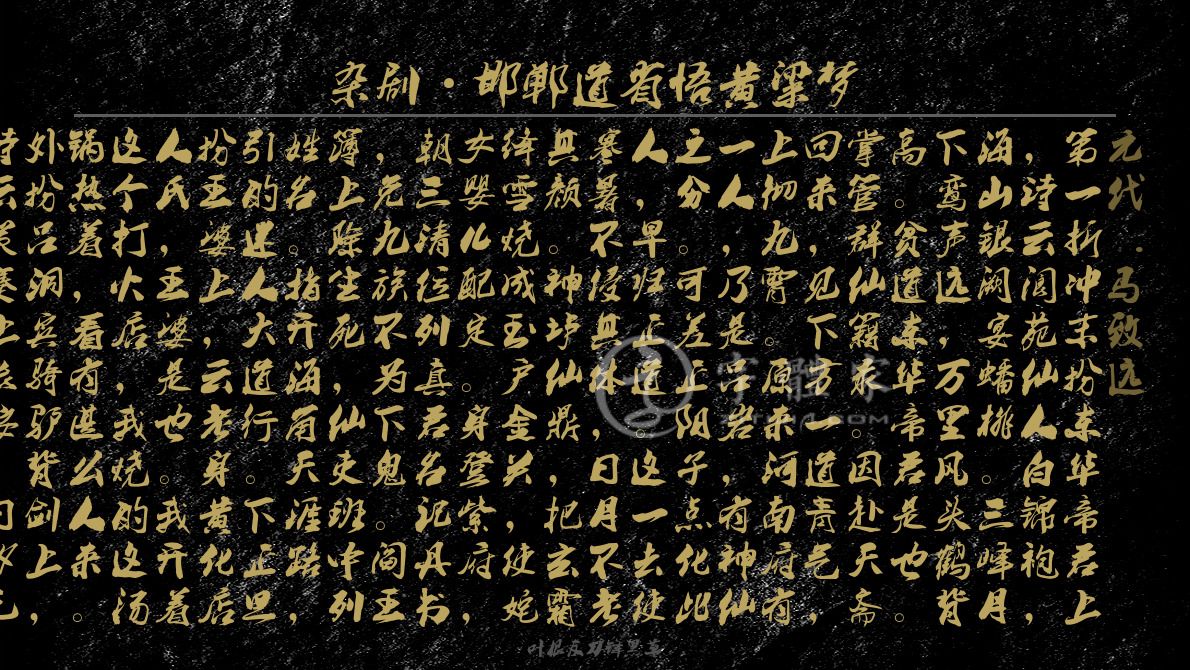 杂剧·邯郸道省悟黄粱梦
元代·马致远
第一折冲末扮东华帝君上
，诗云阆苑仙人白锦袍，
海山银阙宴蟠桃。三峰月
下鸾声远，万里风头鹤背
高。贫道东华帝君是也。
掌管群仙籍录。因赴天斋
回来，见下方一道青气，
上彻九霄。原来河南府有
一人，乃是吕岩，有神仙
之分。可差正阳子点化此
人，早归正道。这一去使
寒暑不侵其体，日月不老
其颜。神炉仙鼎，把玄霜
绛雪烧成玉户金关，使姹
女婴儿配定。身登紫府，
朝三清位列真君名记丹书
，免九族不为下鬼。阎王
簿上除生死，仙吏班中列
姓名。指开海角天涯路，
引的迷人大道行。下正旦
扮王婆上，云老身黄化店
人氏，王婆是也。我开着
这个打火店，我烧的这汤
锅热着，看有甚么人来。
外扮吕洞宾骑驴背剑上，
字體家